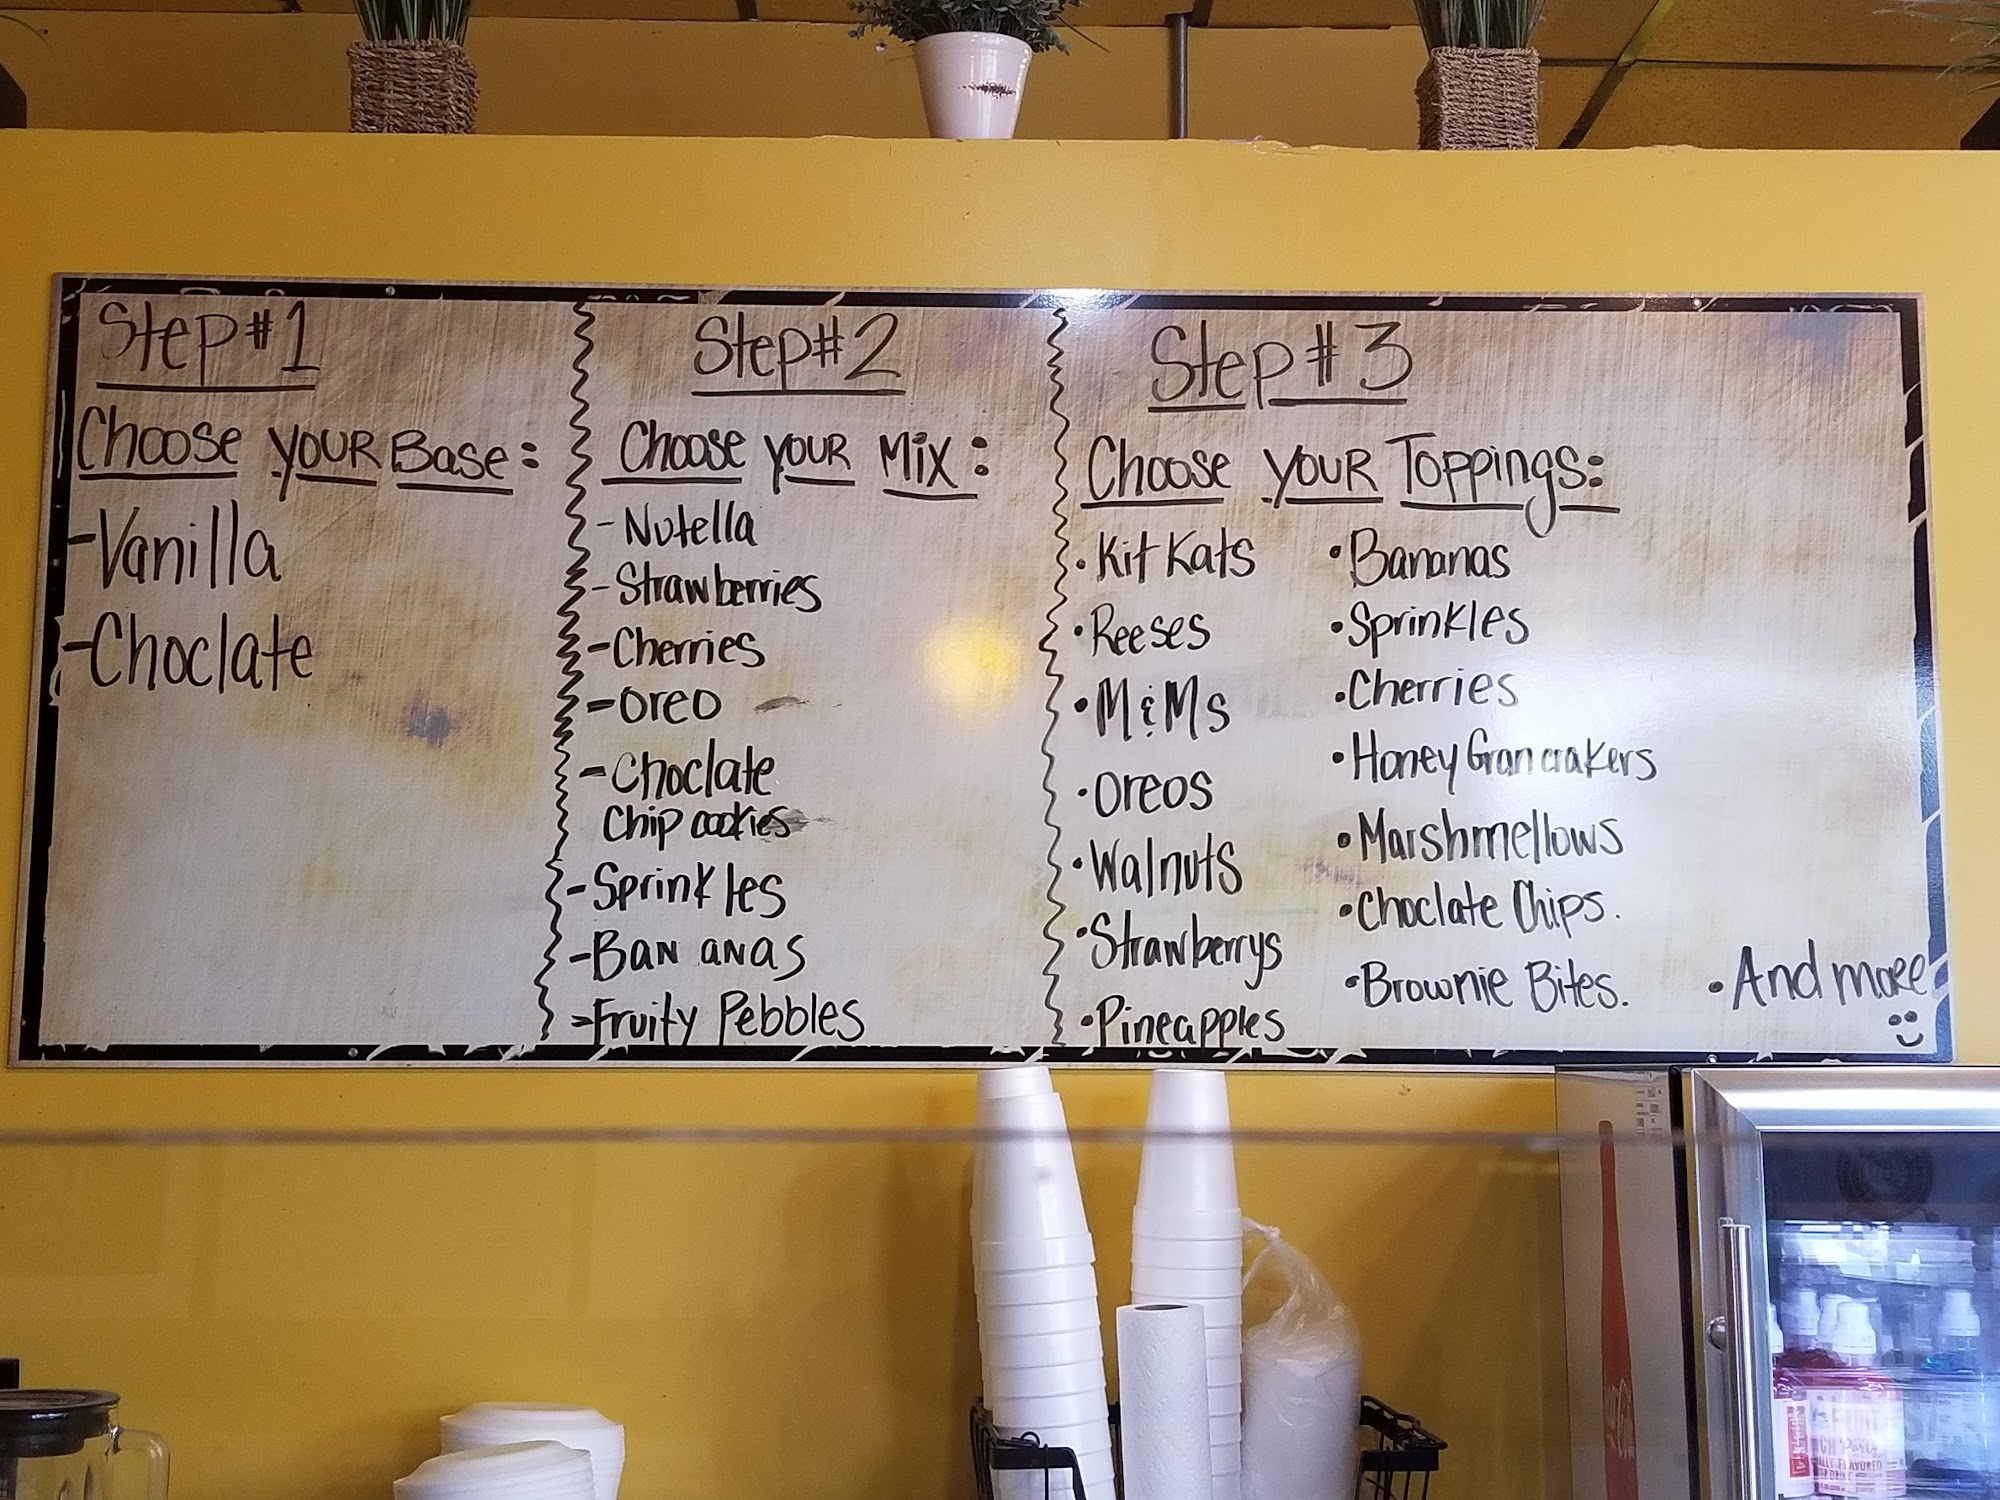 Step #1
Choose your Base:
-Vanilla
-Choclate
Step #2
Choose your Mix:
-Nutella
-Strawberries
-Cherries
-Oreo
-Choclate
Chip cookies
-Sprinkles
-Bananas
-Fruity Pebbles
Step #3
Choose your Toppings:
•Kit Kats
•Reeses
•M&Ms
•Oreos
•Walnuts
•Strawberrys
•Pineapples
•Bananas
•Sprinkles
•Cherries
•Honey Gran crakers
•Marshmellows
•Choclate Chips.
•Brownie Bites.
•And more